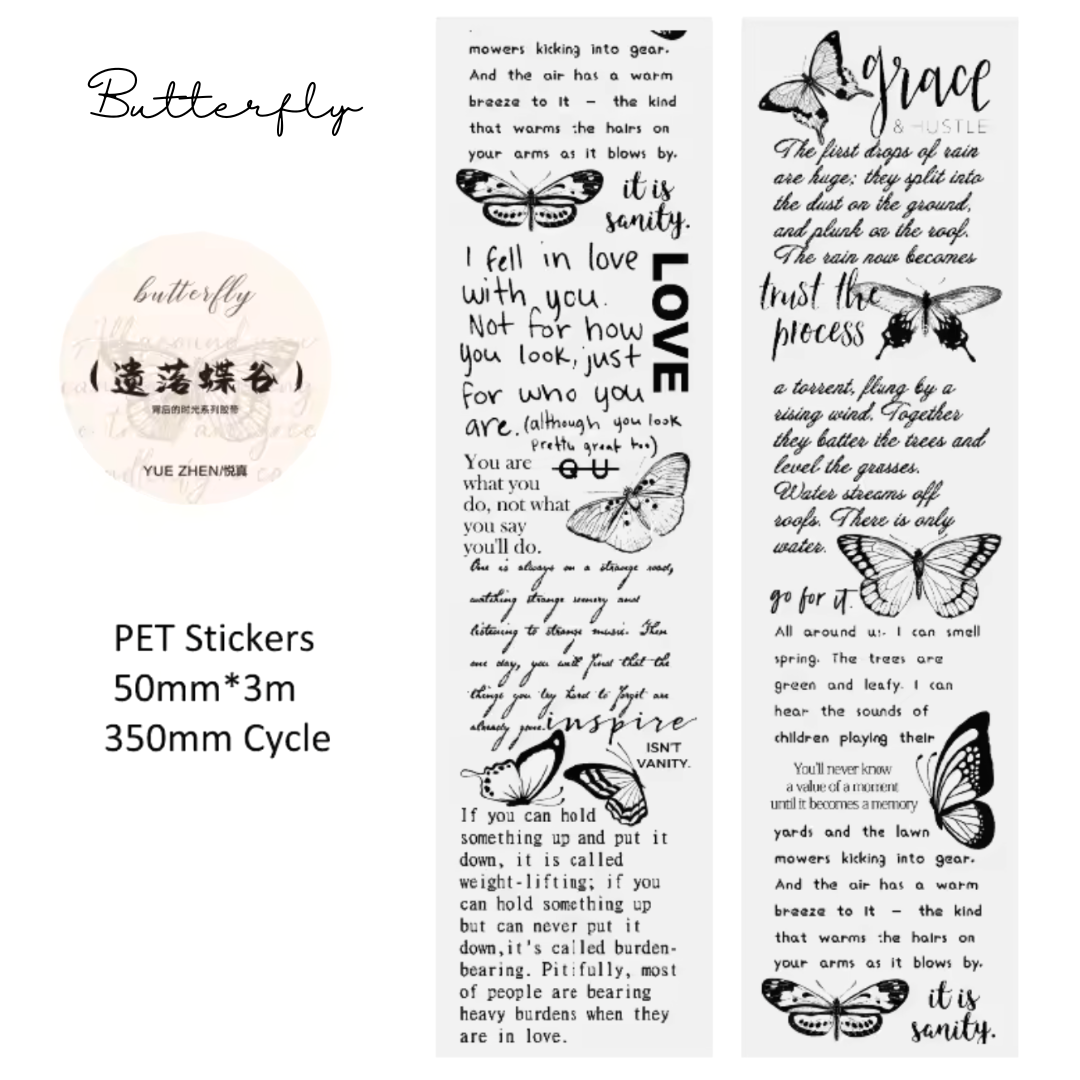 Butterfly
butterfly
(遗落蝶谷)
背后的时光系列胶带
YUE ZHEN/悦真
PET Stickers
50mm*3m
350mm Cycle
mowers kicking into gear.
And the air has a warm
breeze to it – the kind
that warms the hairs on
your arms as it blows by.
it is
sanity.
I fell in love
with you.
Not for how
you look, just
for who you
are. (although you look
pretty great too)
LOVE
QU
You are
what you
do, not what
you say
you'll do.
One is always on a strange road,
watching strange scenery and
listening to strange music. Then
one day, you will find that the
things you try hard to forget are
already gone.
inspire
ISN'T
VANITY.
If you can hold
something up and put it
down, it is called
weight-lifting; if you
can hold something up
but can never put it
down,it's called burden-
bearing. Pitifully, most
of people are bearing
heavy burdens when they
are in love.
grace
& HUSTLE
The first drops of rain
are huge; they split into
the dust on the ground,
and plunk on the roof.
The rain now becomes
trust the
process
a torrent, flung by a
rising wind. Together
they batter the trees and
level the grasses.
Water streams off
roofs. There is only
water.
go for it.
All around us. I can smell
spring. The trees are
green and leafy. I can
hear the sounds of
children playing their
You'll never know
a value of a moment
until it becomes a memory
yards and the lawn
mowers kicking into gear.
And the air has a warm
breeze to it – the kind
that warms the hairs on
your arms as it blows by.
it is
sanity.